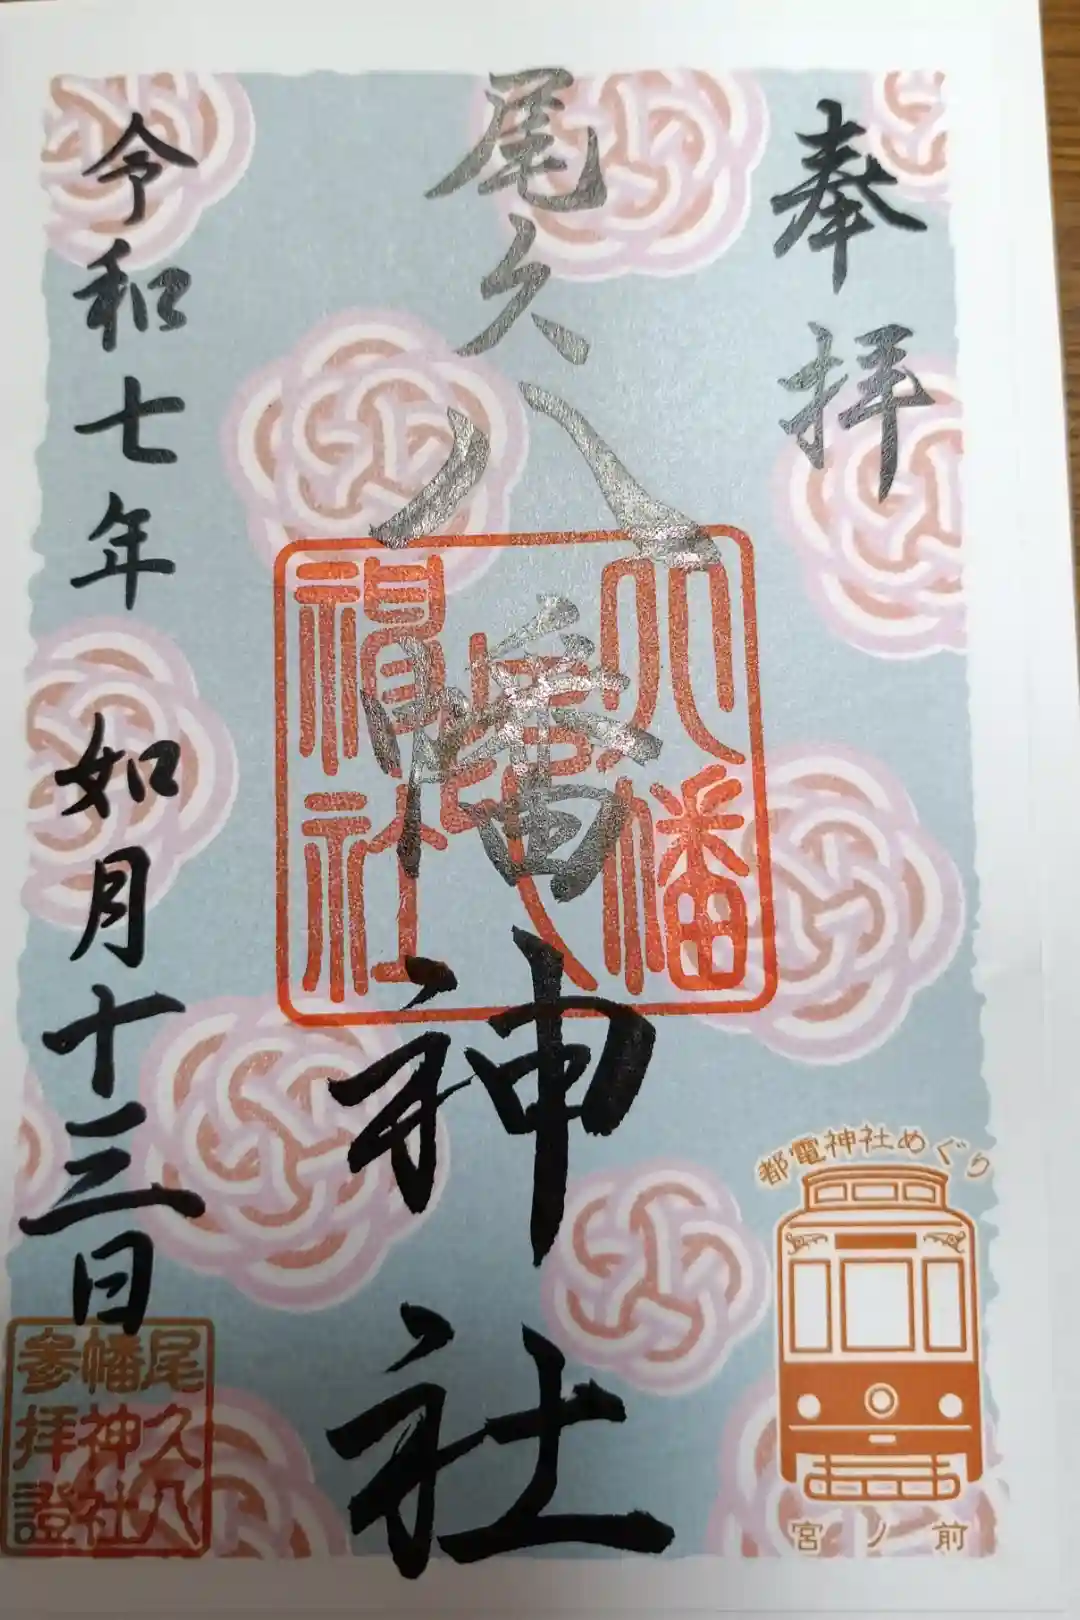 奉拝
尾久八幡神社
令和七年 如月十三日
八幡
神社
尾久八
幡神社
参拝證
都電神社めぐり
宮ノ前